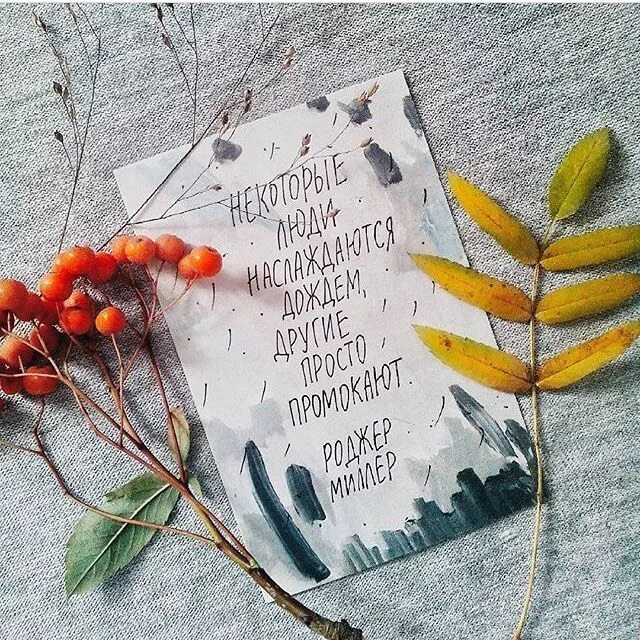 НЕКОТОРЫЕ
ЛЮДИ
НАСЛАЖДАЮТСЯ
ДОЖДЕМ,
ДРУГИЕ
ПРОСТО
ПРОМОКАЮТ.
РОДЖЕР
МИЛЛЕР